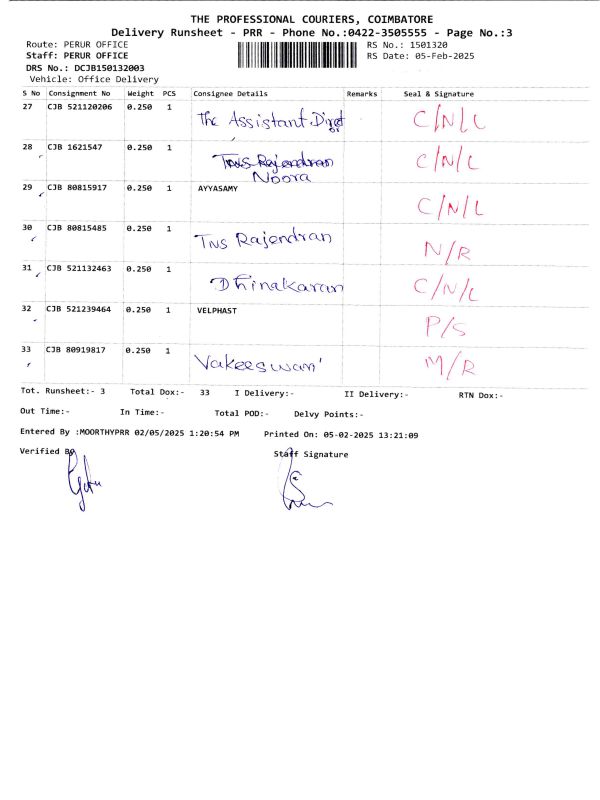 THE PROFESSIONAL COURIERS, COIMBATORE
Delivery Runsheet - PRR - Phone No.:0422-3505555 - Page No.:3
Route: PERUR OFFICE RS No.: 1501320
Staff: PERUR OFFICE RS Date: 05-Feb-2025
DRS No.: DCJB150132003
Vehicle: Office Delivery
S No Consignment No Weight PCS Consignee Details Remarks Seal & Signature
27 CJB 521120206 0.250 1 The Assistant Direct or C/N/L
28 CJB 1621547 0.250 1 TNS Rajendran C/N/L
Noora
29 CJB 80815917 0.250 1 AYYASAMY C/N/L
30 CJB 80815485 0.250 1 TNS Rajendran N/R
31 CJB 521132463 0.250 1 Dhinakaran C/N/L
32 CJB 521239464 0.250 1 VELPHAST P/S
33 CJB 80919817 0.250 1 Vakeeswari M/R
Tot. Runsheet:- 3 Total Dox:- 33 I Delivery:- II Delivery:- RTN Dox:-
Out Time:- In Time:- Total POD:- Delvy Points:-
Entered By :MOORTHYPRR 02/05/2025 1:20:54 PM Printed On: 05-02-2025 13:21:09
Verified By Staff Signature